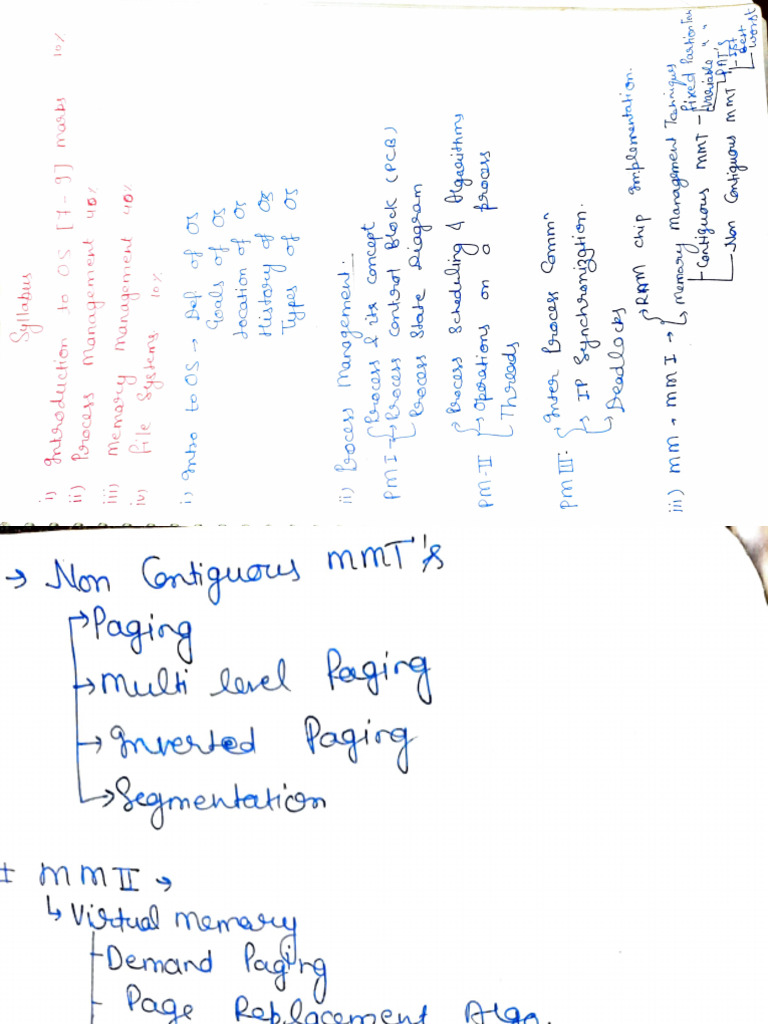 Syllabus
i) Introduction to OS [7-9] marks 10%
ii) Process Management 40%
iii) Memory Management 40%
iv) File Systems 10%
i) Intro to OS → Def of OS
Goals of OS
Location of OS
History of OS
Types of OS
ii) Process Management:
PM I → Process & its concept
→ Process Control Block (PCB)
Process State Diagram
PM-II → Process Scheduling & Algorithms
→ Operations on a process
Threads
PM III: Inter Process Commⁿ
→ IP Synchronization.
→ Deadlocks
iii) MM → MM I → RAM chip Implementation.
→ Memory Management Techniques
Contiguous MMT - Fixed Partion
Variable " "
PAT's
- Ist
- Best
- Worst
- Non Contiguous MMT
→ Non Contiguous MMT's
→ Paging
→ Multi level Paging
→ Inverted Paging
→ Segmentation
MM II →
↳ Virtual memory
- Demand Paging
- Page Replacement Algo.